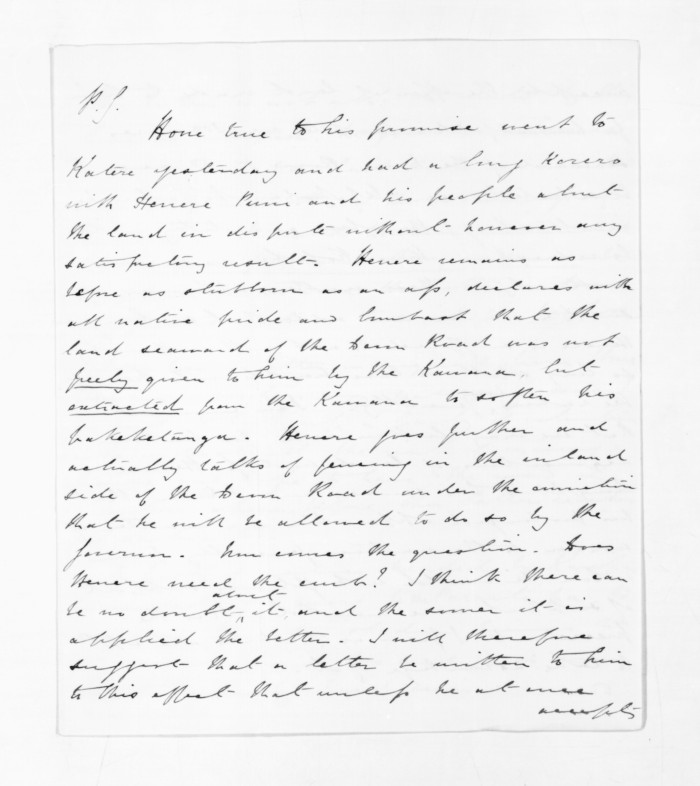 P.S.
Hone true to his promise went to
Katere yesterday and had a long Korero
with Henere Puni and his people about
the land in dispute without however any
satisfactory result. Henere remains as
before as stubborn as an ass, declares with
all native pride and bombast that the
land seaward of the Devon Road was not
freely given to him by the Kawana, but
extracted from the Kawana to soften his
pakeketanga. Henere goes further and
actually talks of fencing in the inland
side of the Devon Road under the conviction
that he will be allowed to do so by the
Governor. Now comes the question. Does
Henere need the curb? I think there can
be no doubt about it, and the sooner it is
applied the better. I will therefore
suggest that a letter be written to him
to this effect that unless he at once
accepts